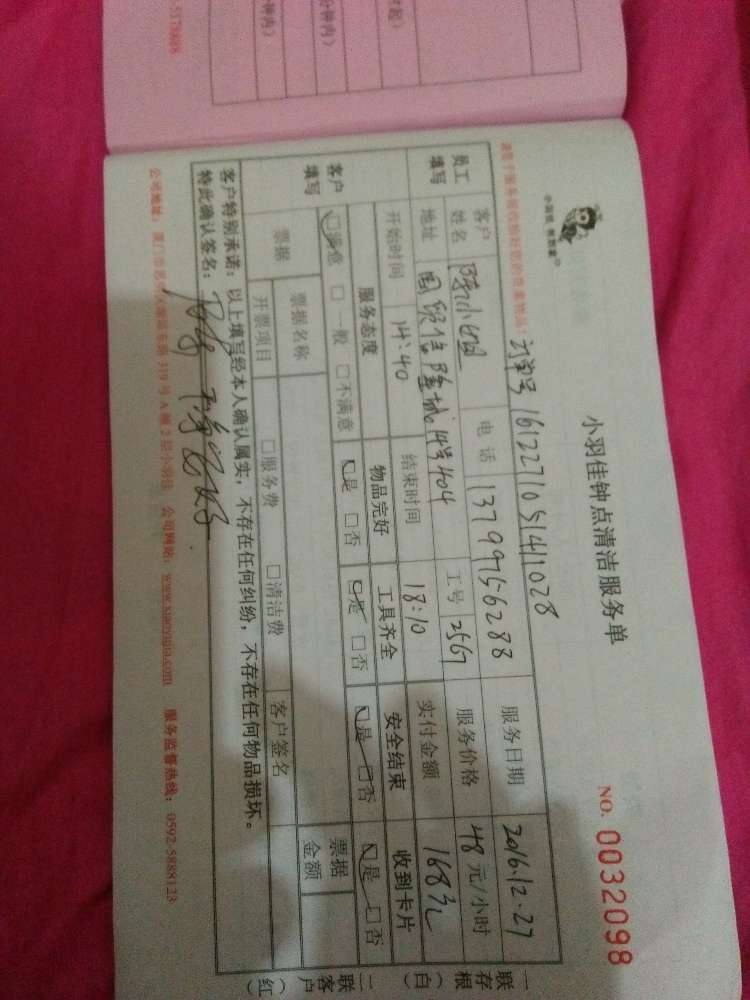 小羽佳钟点清洁服务单
NO. 0032098
订单号 1612271051411028
请客户服务前收拾好您的贵重物品!
员工填写
客户姓名 陈小姐 电话 13799756288 服务日期 2016.12.27
地址 国贸信隆城14号404 工号 2567 服务价格 48元/小时
开始时间 14:40 结束时间 18:10 实付金额 168元
客户填写
服务态度 物品完好 工具齐全 安全结束 收到卡片
☑满意 □一般 □不满意 ☑是 □否 ☑是 □否 ☑是 □否 ☑是 □否
票据 票据名称 票据金额
开票项目 □服务费 □清洁费 客户签名
客户特别承诺:以上填写经本人确认属实,不存在任何纠纷,不存在任何物品损坏。
特此确认签名:
公司地址: 319号A幢2层小羽佳 公司网站: www.xiaoyujia.com 服务监督热线: 0592-5888123
一联存根(白)
二联客户(红)